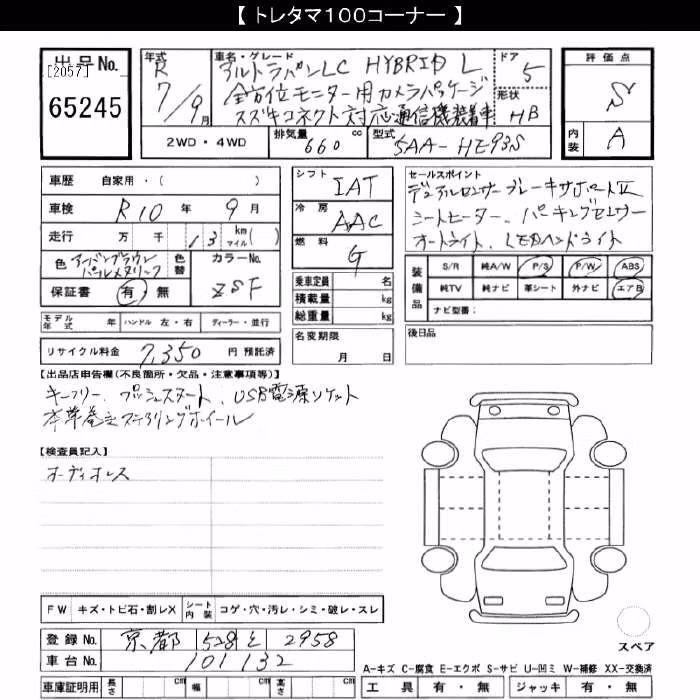 【 トレタマ100コーナー 】
出品No.
[2057]
65245
年式
R
7/9月
車名・グレード
アルトラパンLC HYBRID L
全方位モニター用カメラパッケージ
スズキコネクト対応通信機装着車
ドア
5
形状
HB
評価点
S
内装
A
2WD・4WD
排気量
660 cc
型式
5AA-HE93S
車歴 自家用・( )
車検 R10 年 9 月
走行 万 千 13 km マイル( )
色 アーバンブラウンパールメタリック
色替
カラーNo.
ZSF
保証書 有・無
シフト
IAT
冷房
AAC
燃料
G
乗車定員 名
積載量 kg
総重量 kg
セールスポイント
デュアルセンサーブレーキサポートⅡ
シートヒーター、パーキングセンサー
オートライト、LEDヘッドライト
装備品
S/R 純A/W P/S P/W ABS
純TV 純ナビ 革シート 外ナビ エアB
ナビ型番:
モデル年式 年 ハンドル 左・右 ディーラー・並行
リサイクル料金 7,350 円 預託済
名変期限
月 日
後日品
【出品店申告欄(不良箇所・欠品・注意事項等)】
キーフリー、プッシュスタート、USB電源ソケット
本革巻きステアリングホイール
【検査員記入】
オーディオレス
FW キズ・トビ石・割レX シート内装 コゲ・穴・汚レ・シミ・破レ・スレ
登録No. 京都 528 と 2958
車台No. 101132
車庫証明用 長さ cm 幅 cm 高さ cm
スペア
A-キズ C-腐食 E-エクボ S-サビ U-凹ミ W-補修 XX-交換済
工具 有・無 ジャッキ 有・無